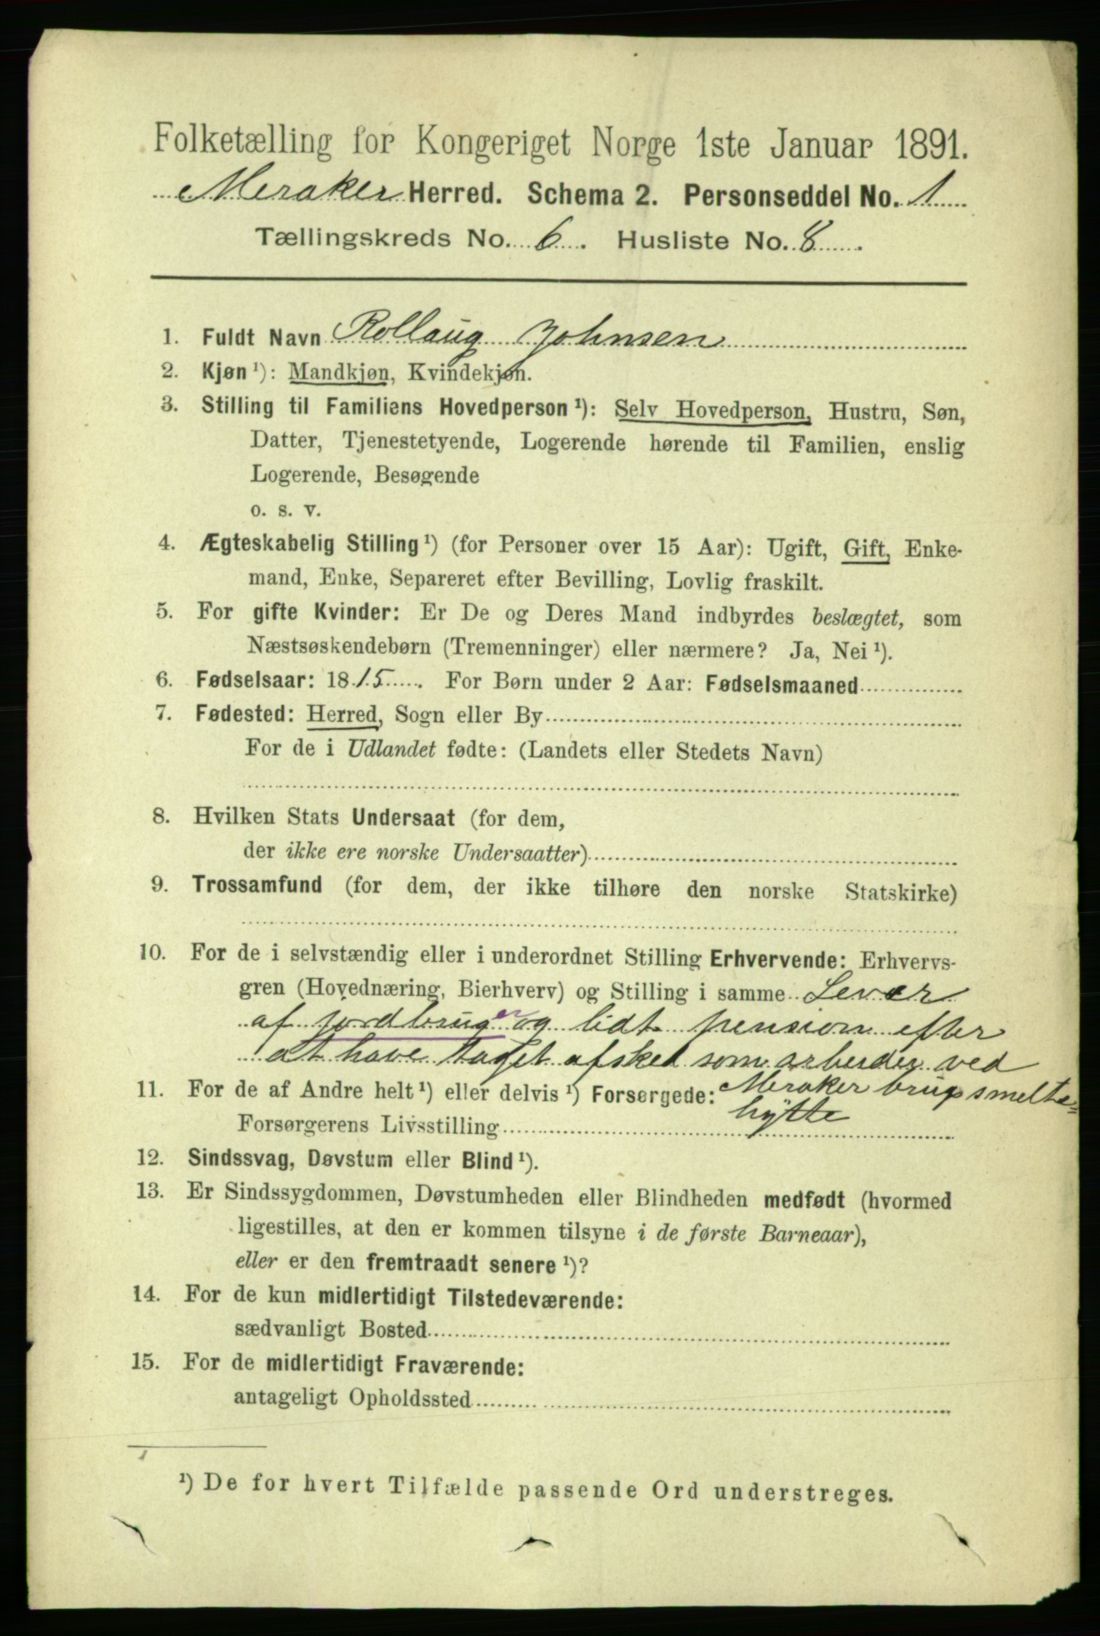 Folketælling for Kongeriget Norge 1ste Januar 1891.
Meraker Herred. Schema 2. Personseddel No. 1
Tællingskreds No. 6. Husliste No. 8
1. Fuldt Navn Rollaug Johnsen
2. Kjøn ¹): Mandkjøn, Kvindekjøn.
3. Stilling til Familiens Hovedperson ¹): Selv Hovedperson, Hustru, Søn,
Datter, Tjenestetyende, Logerende hørende til Familien, enslig
Logerende, Besøgende
o. s. v.
4. Ægteskabelig Stilling ¹) (for Personer over 15 Aar): Ugift, Gift, Enke-
mand, Enke, Separeret efter Bevilling, Lovlig fraskilt.
5. For gifte Kvinder: Er De og Deres Mand indbyrdes beslægtet, som
Næstsøskendebørn (Tremenninger) eller nærmere? Ja, Nei ¹).
6. Fødselsaar: 1815. For Børn under 2 Aar: Fødselsmaaned
7. Fødested: Herred, Sogn eller By
For de i Udlandet fødte: (Landets eller Stedets Navn)
8. Hvilken Stats Undersaat (for dem,
der ikke ere norske Undersaatter)
9. Trossamfund (for dem, der ikke tilhøre den norske Statskirke)
10. For de i selvstændig eller i underordnet Stilling Erhvervende: Erhvervs-
gren (Hovednæring, Bierhverv) og Stilling i samme Lever
af jordbruger og lidt pension efter
at have taget afsked som arbeider ved
11. For de af Andre helt ¹) eller delvis ¹) Forsørgede: Meraker brugs smelte=
Forsørgerens Livsstilling hytte
12. Sindssvag, Døvstum eller Blind ¹).
13. Er Sindssygdommen, Døvstumheden eller Blindheden medfødt (hvormed
ligestilles, at den er kommen tilsyne i de første Barneaar),
eller er den fremtraadt senere ¹)?
14. For de kun midlertidigt Tilstedeværende:
sædvanligt Bosted
15. For de midlertidigt Fraværende:
antageligt Opholdssted
¹) De for hvert Tilfælde passende Ord understreges.